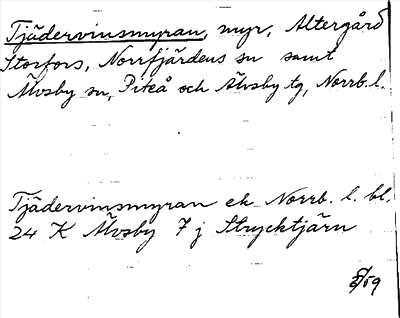 Tjädervinsmyran, myr, Altergård
Storfors, Norrfjärdens sn samt
Älvsby sn, Piteå och Älvsby tg, Norrb. l.
Tjädervinsmyran ek Norrb. l. bl.
24 K Älvsby 7 j Strycktjärn